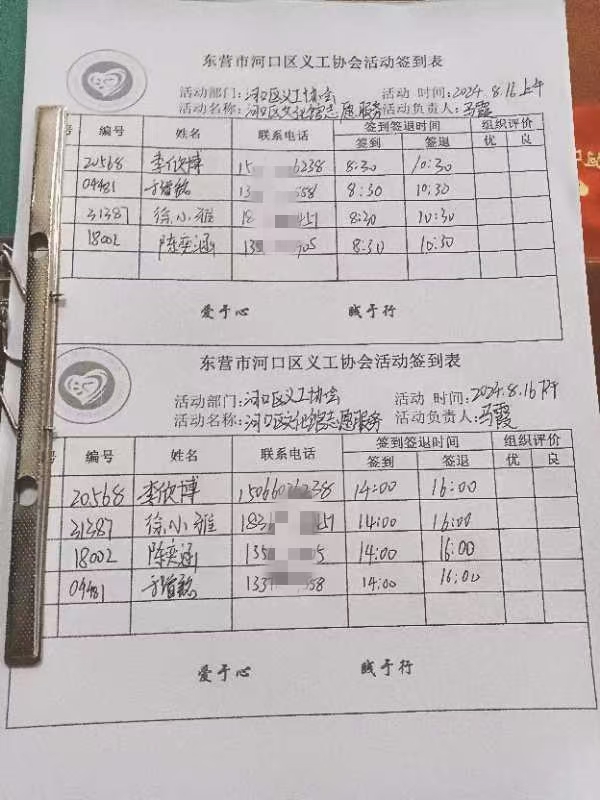 东营市河口区义工协会活动签到表
活动部门：河口区义工协会 活动 时间：2024.8.16上午
活动名称：河口区文化馆志愿服务 活动负责人：马霞
编号 姓名 联系电话 签到签退时间 组织评价
签到 签退 优 良
20568 李欣博 15 6238 8:30 10:30
09481 13 658 8:30 10:30
31387 徐小雅 18 451 8:30 10:30
18002 陈奕涵 13 905 8:30 10:30
爱于心 践于行
东营市河口区义工协会活动签到表
活动部门：河口区义工协会 活动 时间：2024.8.16下午
活动名称：河口区文化馆志愿服务 活动负责人：马霞
编号 姓名 联系电话 签到签退时间 组织评价
签到 签退 优 良
20568 李欣博 15066 238 14:00 16:00
31387 徐小雅 183 51 14:00 16:00
18002 陈奕涵 135 5 14:00 16:00
09481 133 58 14:00 16:00
爱于心 践于行